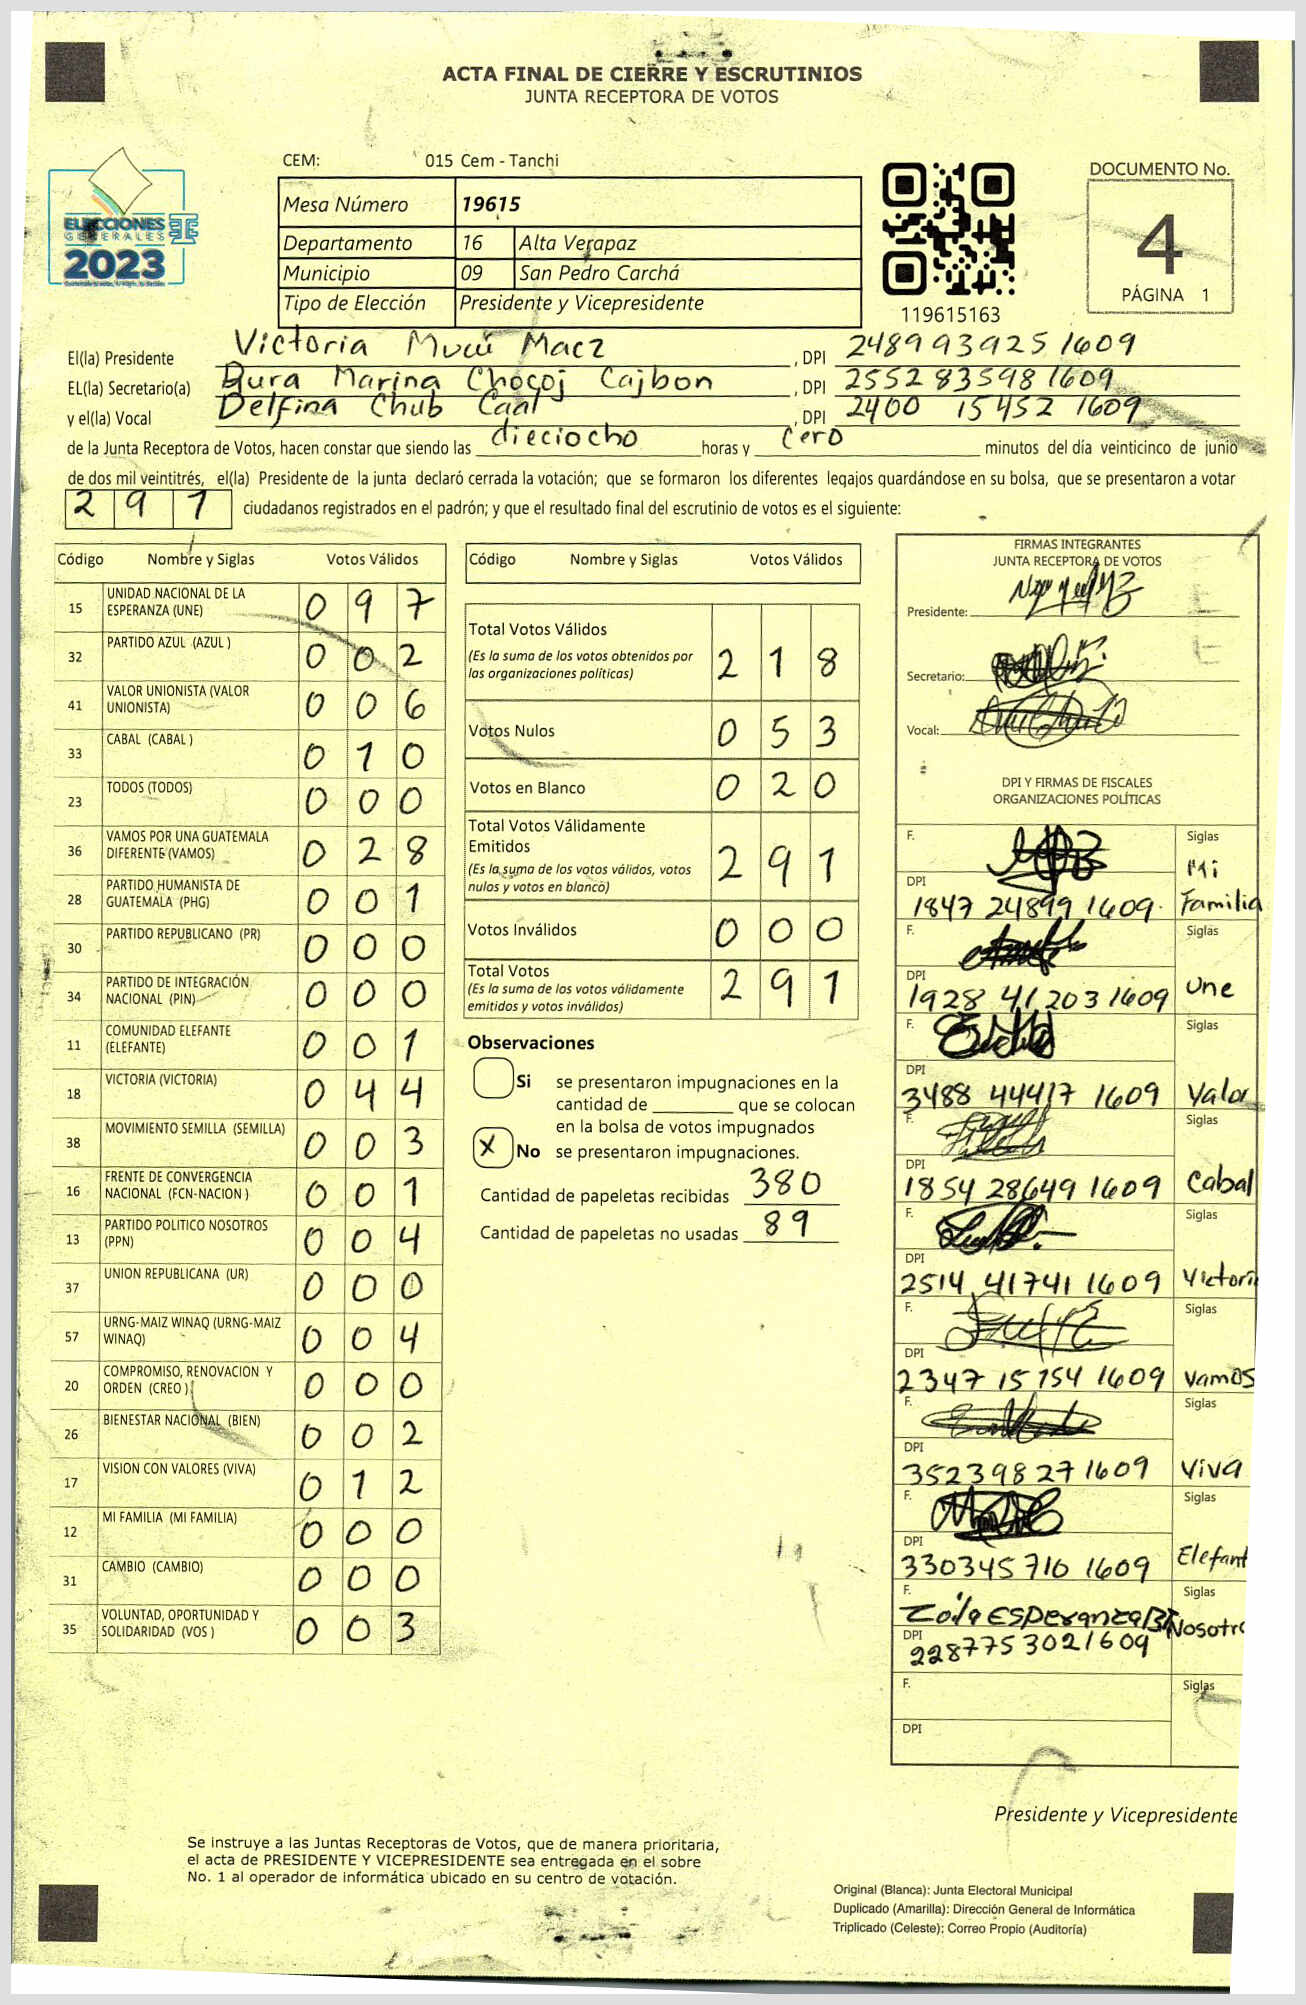 ACTA FINAL DE CIERRE Y ESCRUTINIOS
JUNTA RECEPTORA DE VOTOS
CEM: 015 Cem - Tanchi
ELECCIONES
GENERALES
2023
Mesa Número 19615
Departamento 16 Alta Verapaz
Municipio 09 San Pedro Carchá
Tipo de Elección Presidente y Vicepresidente
119615163
DOCUMENTO No.
4
PÁGINA 1
El(la) Presidente Victoria Macz , DPI 248993925 1609
EL(la) Secretario(a) Marina Chocoj Cajbon , DPI 2552 83598 1609
y el(la) Vocal Delfina Chub Caal , DPI 2400 15452 1609
de la Junta Receptora de Votos, hacen constar que siendo las dieciocho horas y cero minutos del día veinticinco de junio
de dos mil veintitrés, el(la) Presidente de la junta declaró cerrada la votación; que se formaron los diferentes legajos guardándose en su bolsa, que se presentaron a votar
2 9 1 ciudadanos registrados en el padrón; y que el resultado final del escrutinio de votos es el siguiente:
Código Nombre y Siglas Votos Válidos
15 UNIDAD NACIONAL DE LA ESPERANZA (UNE) 0 9 7
32 PARTIDO AZUL (AZUL ) 0 0 2
41 VALOR UNIONISTA (VALOR UNIONISTA) 0 0 6
33 CABAL (CABAL ) 0 1 0
23 TODOS (TODOS) 0 0 0
36 VAMOS POR UNA GUATEMALA DIFERENTE (VAMOS) 0 2 8
28 PARTIDO HUMANISTA DE GUATEMALA (PHG) 0 0 1
30 PARTIDO REPUBLICANO (PR) 0 0 0
34 PARTIDO DE INTEGRACIÓN NACIONAL (PIN) 0 0 0
11 COMUNIDAD ELEFANTE (ELEFANTE) 0 0 1
18 VICTORIA (VICTORIA) 0 4 4
38 MOVIMIENTO SEMILLA (SEMILLA) 0 0 3
16 FRENTE DE CONVERGENCIA NACIONAL (FCN-NACION ) 0 0 1
13 PARTIDO POLITICO NOSOTROS (PPN) 0 0 4
37 UNION REPUBLICANA (UR) 0 0 0
57 URNG-MAIZ WINAQ (URNG-MAIZ WINAQ) 0 0 4
20 COMPROMISO, RENOVACION Y ORDEN (CREO ) 0 0 0
26 BIENESTAR NACIONAL (BIEN) 0 0 2
17 VISION CON VALORES (VIVA) 0 1 2
12 MI FAMILIA (MI FAMILIA) 0 0 0
31 CAMBIO (CAMBIO) 0 0 0
35 VOLUNTAD, OPORTUNIDAD Y SOLIDARIDAD (VOS ) 0 0 3
Código Nombre y Siglas Votos Válidos
Total Votos Válidos 2 1 8
(Es la suma de los votos obtenidos por
las organizaciones políticas)
Votos Nulos 0 5 3
Votos en Blanco 0 2 0
Total Votos Válidamente
Emitidos 2 9 1
(Es la suma de los votos válidos, votos
nulos y votos en blanco)
Votos Inválidos 0 0 0
Total Votos 2 9 1
(Es la suma de los votos válidamente
emitidos y votos inválidos)
Observaciones
Si se presentaron impugnaciones en la
cantidad de ________ que se colocan
en la bolsa de votos impugnados
X No se presentaron impugnaciones.
Cantidad de papeletas recibidas 380
Cantidad de papeletas no usadas 89
FIRMAS INTEGRANTES
JUNTA RECEPTORA DE VOTOS
Presidente:
Secretario:
Vocal:
DPI Y FIRMAS DE FISCALES
ORGANIZACIONES POLÍTICAS
F. Siglas
DPI 1847 24899 1609 Mi Familia
F. Siglas
DPI 1928 41203 1609 Une
F. Siglas
DPI 3488 44417 1609 Valor
F. Siglas
DPI 1854 28649 1609 Cabal
F. Siglas
DPI 2514 41741 1609 Victori
F. Siglas
DPI 2347 15154 1609 Vamos
F. Siglas
DPI 352398271609 Viva
F. Siglas
DPI 330345710 1609 Elefant
F. Zoila Esperanza Siglas
DPI 2287753021609 Nosotro
F. Siglas
DPI
Presidente y Vicepresidente
Se instruye a las Juntas Receptoras de Votos, que de manera prioritaria,
el acta de PRESIDENTE Y VICEPRESIDENTE sea entregada en el sobre
No. 1 al operador de informática ubicado en su centro de votación.
Original (Blanca): Junta Electoral Municipal
Duplicado (Amarilla): Dirección General de Informática
Triplicado (Celeste): Correo Propio (Auditoría)